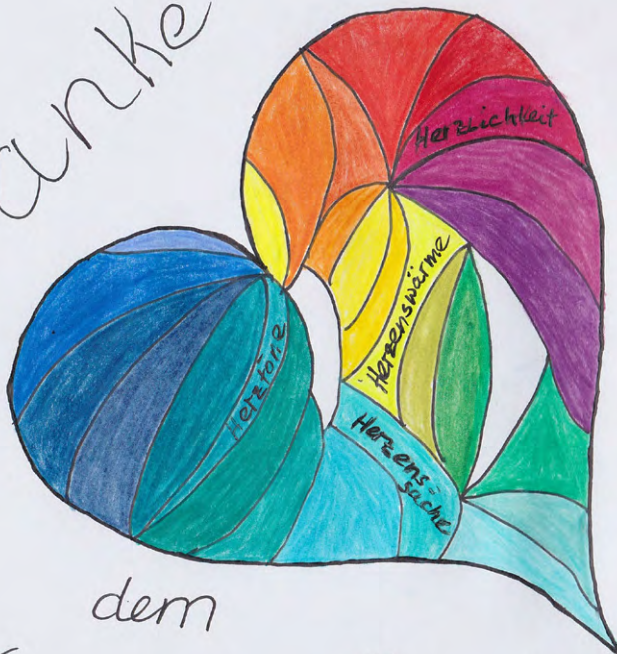 anke
Herzlichkeit
Herzenswärme
Herztöne
Herzens=
sache
dem